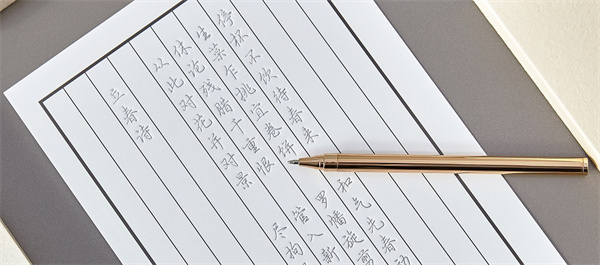 停杯不饮待春来 和气先春动
生菜乍挑宜卷饼 罗幡旋剪
休论残腊千重恨 管入新
从此对花并对景 尽拘
立春诗